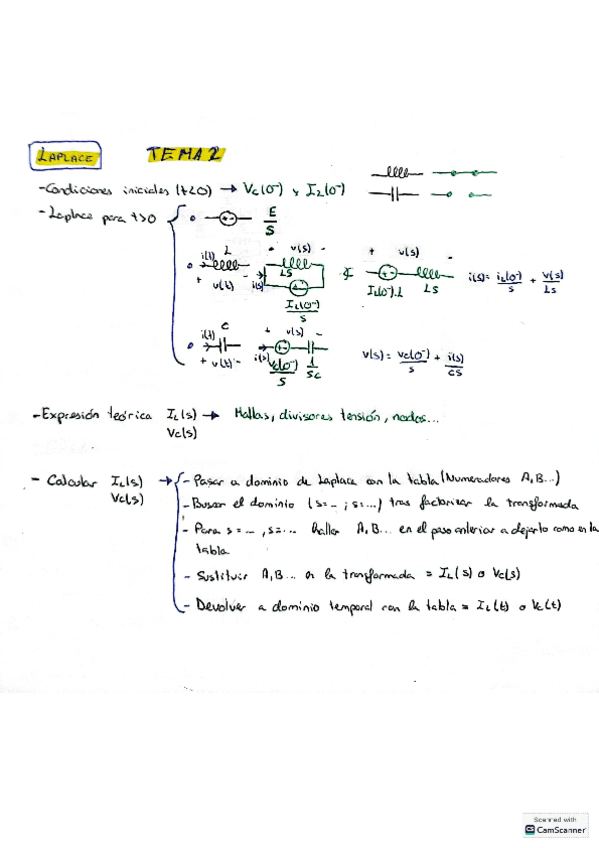 LAPLACE TEMA 2
- Condiciones iniciales (t<0) → Vc(0⁻) y IL(0⁻)
- Laplace para t>0
E/S
i(t) L + v(t) -
+ v(s) - i(s) LS IL(0⁻)/S
+ v(s) - IL(0⁻).L LS
i(s) = iL(0⁻)/s + v(s)/Ls
i(t) C + v(t) -
+ v(s) - i(s) Vc(0⁻)/S 1/SC
v(s) = vc(0⁻)/s + i(s)/CS
- Expresión teórica IL(s) → Mallas, divisores tensión, nodos...
Vc(s)
- Calcular IL(s) → - Pasar a dominio de Laplace con la tabla (Numeradores A, B...)
Vc(s)
- Buscar el dominio (s=... ; s=...) tras factorizar la transformada
- Para s=..., s=... hallar A, B... en el paso anterior a dejarlo como en la
tabla
- Sustituir A, B... en la transformada = IL(s) o Vc(s)
- Devolver a dominio temporal con la tabla = IL(t) o Vc(t)
Scanned with
CS CamScanner